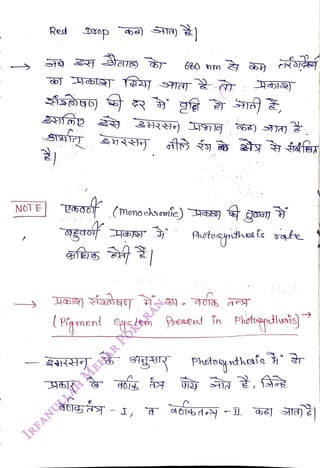 Red Drop कहा जाता है|
→ जब इस शैवाल को 680 nm से कम तरंगदैर्ध्य
का प्रकाश दिया जाता है तो प्रकाश
संश्लेषण की दर में वृद्धि हो जाती है,
इसलिए इसे इमरसन प्रभाव कहा जाता है
अर्थात् इमरसन नीले रंग के क्षेत्र से संबंधित
है|
NOTE एकवर्णी (monochromic) प्रकाश की तुलना में
बहुवर्णी प्रकाश में Photosynthesis rate
अधिक होती है|
→ प्रकाश संश्लेषण में वर्णक तन्त्र
(Pigment System Present in Photosynthesis) →
- इमरसन के अनुसार Photosynthesis में दो
प्रकार के वर्णक तंत्र पाये जाते है, जिन्हे
वर्णक तंत्र - I, व वर्णकतन्त्र - II कहा जाता है|
IRFANULLAH MEHAR POKARAN